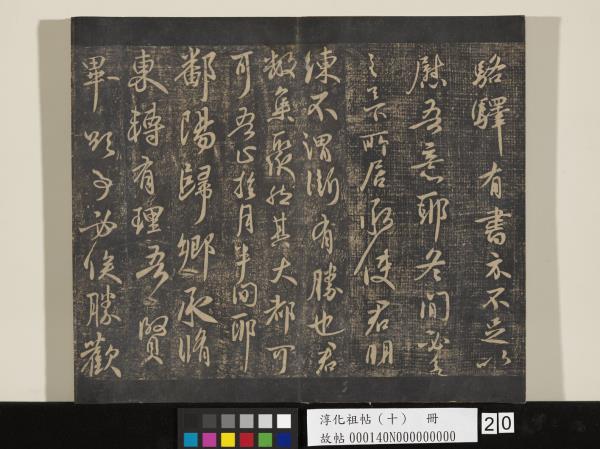 駱驛有書亦不足以
慰吾意耶冬間必
所居承使君明
練不謂漸有勝也君
散其大都可
可吾止於月半間耶
鄱陽歸鄉承脩
東轉有理吾賢
畢欲事必俟勝歡
淳化祖帖(十) 冊
故帖000140N000000000
20